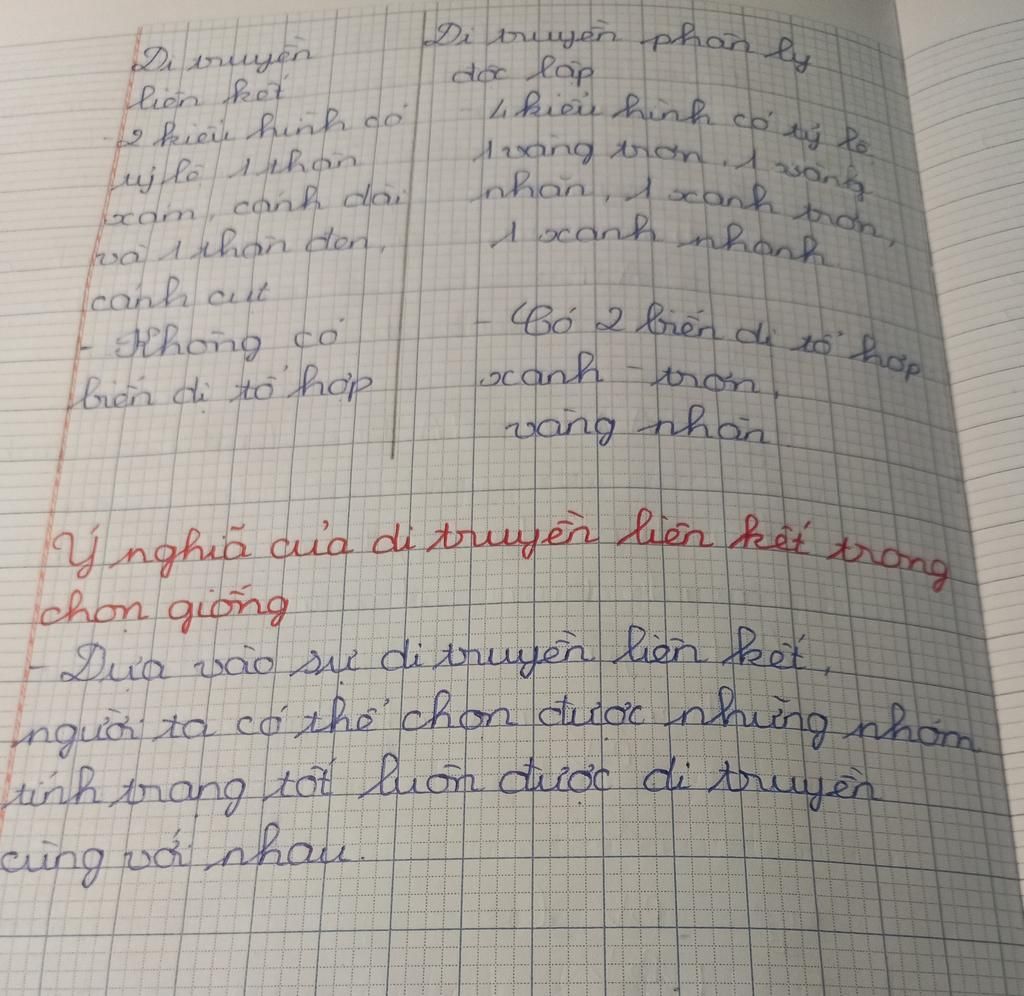 Di truyền
liên kết
- 2 kiểu hình có
tỷ lệ 1 thân
xám, cánh dài
và 1 thân đen,
cánh cụt
- Không có
biến dị tổ hợp
Di truyền phân ly
độc lập
- 4 kiểu hình có tỷ lệ
1 vàng trơn, 1 vàng
nhăn, 1 xanh trơn,
1 xanh nhanh
- Có 2 biến dị tổ hợp
xanh - trơn,
vàng nhăn
Ý nghĩa của di truyền liên kết trong
chọn giống
- Dựa vào sự di truyền liên kết,
người ta có thể chọn được những nhóm
tính trạng tốt luôn được di truyền
cùng với nhau.